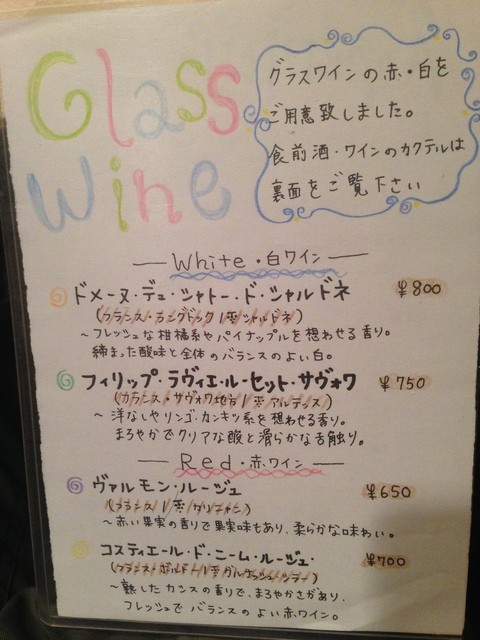 Glass
Wine
グラスワインの赤・白を
ご用意致しました。
食前酒・ワインのカクテルは
裏面をご覧下さい
White・白ワイン
ドメーヌ・デュ・シャトー・ド・シャルドネ ¥800
(フランス・ラングドック/シャルドネ)
～フレッシュな柑橘系やパイナップルを想わせる香り。
締まった酸味と全体のバランスのよい白。
フィリップ・ラヴィエ・ルーセット・サヴォワ ¥750
(フランス・サヴォワ地方/アルテッス)
～洋なしやリンゴ、カンキツ系を想わせる香り。
まろやかでクリアな酸と滑らかな舌触り。
Red・赤ワイン
ヴァルモン・ルージュ ¥650
(フランス/カリニャン)
～赤い果実の香りで果実味もあり、柔らかな味わい。
コスティエール・ド・ニーム・ルージュ・ ¥700
(フランス・
～熟したカシスの香りで、まろやかさがあり、
フレッシュでバランスのよい赤ワイン。